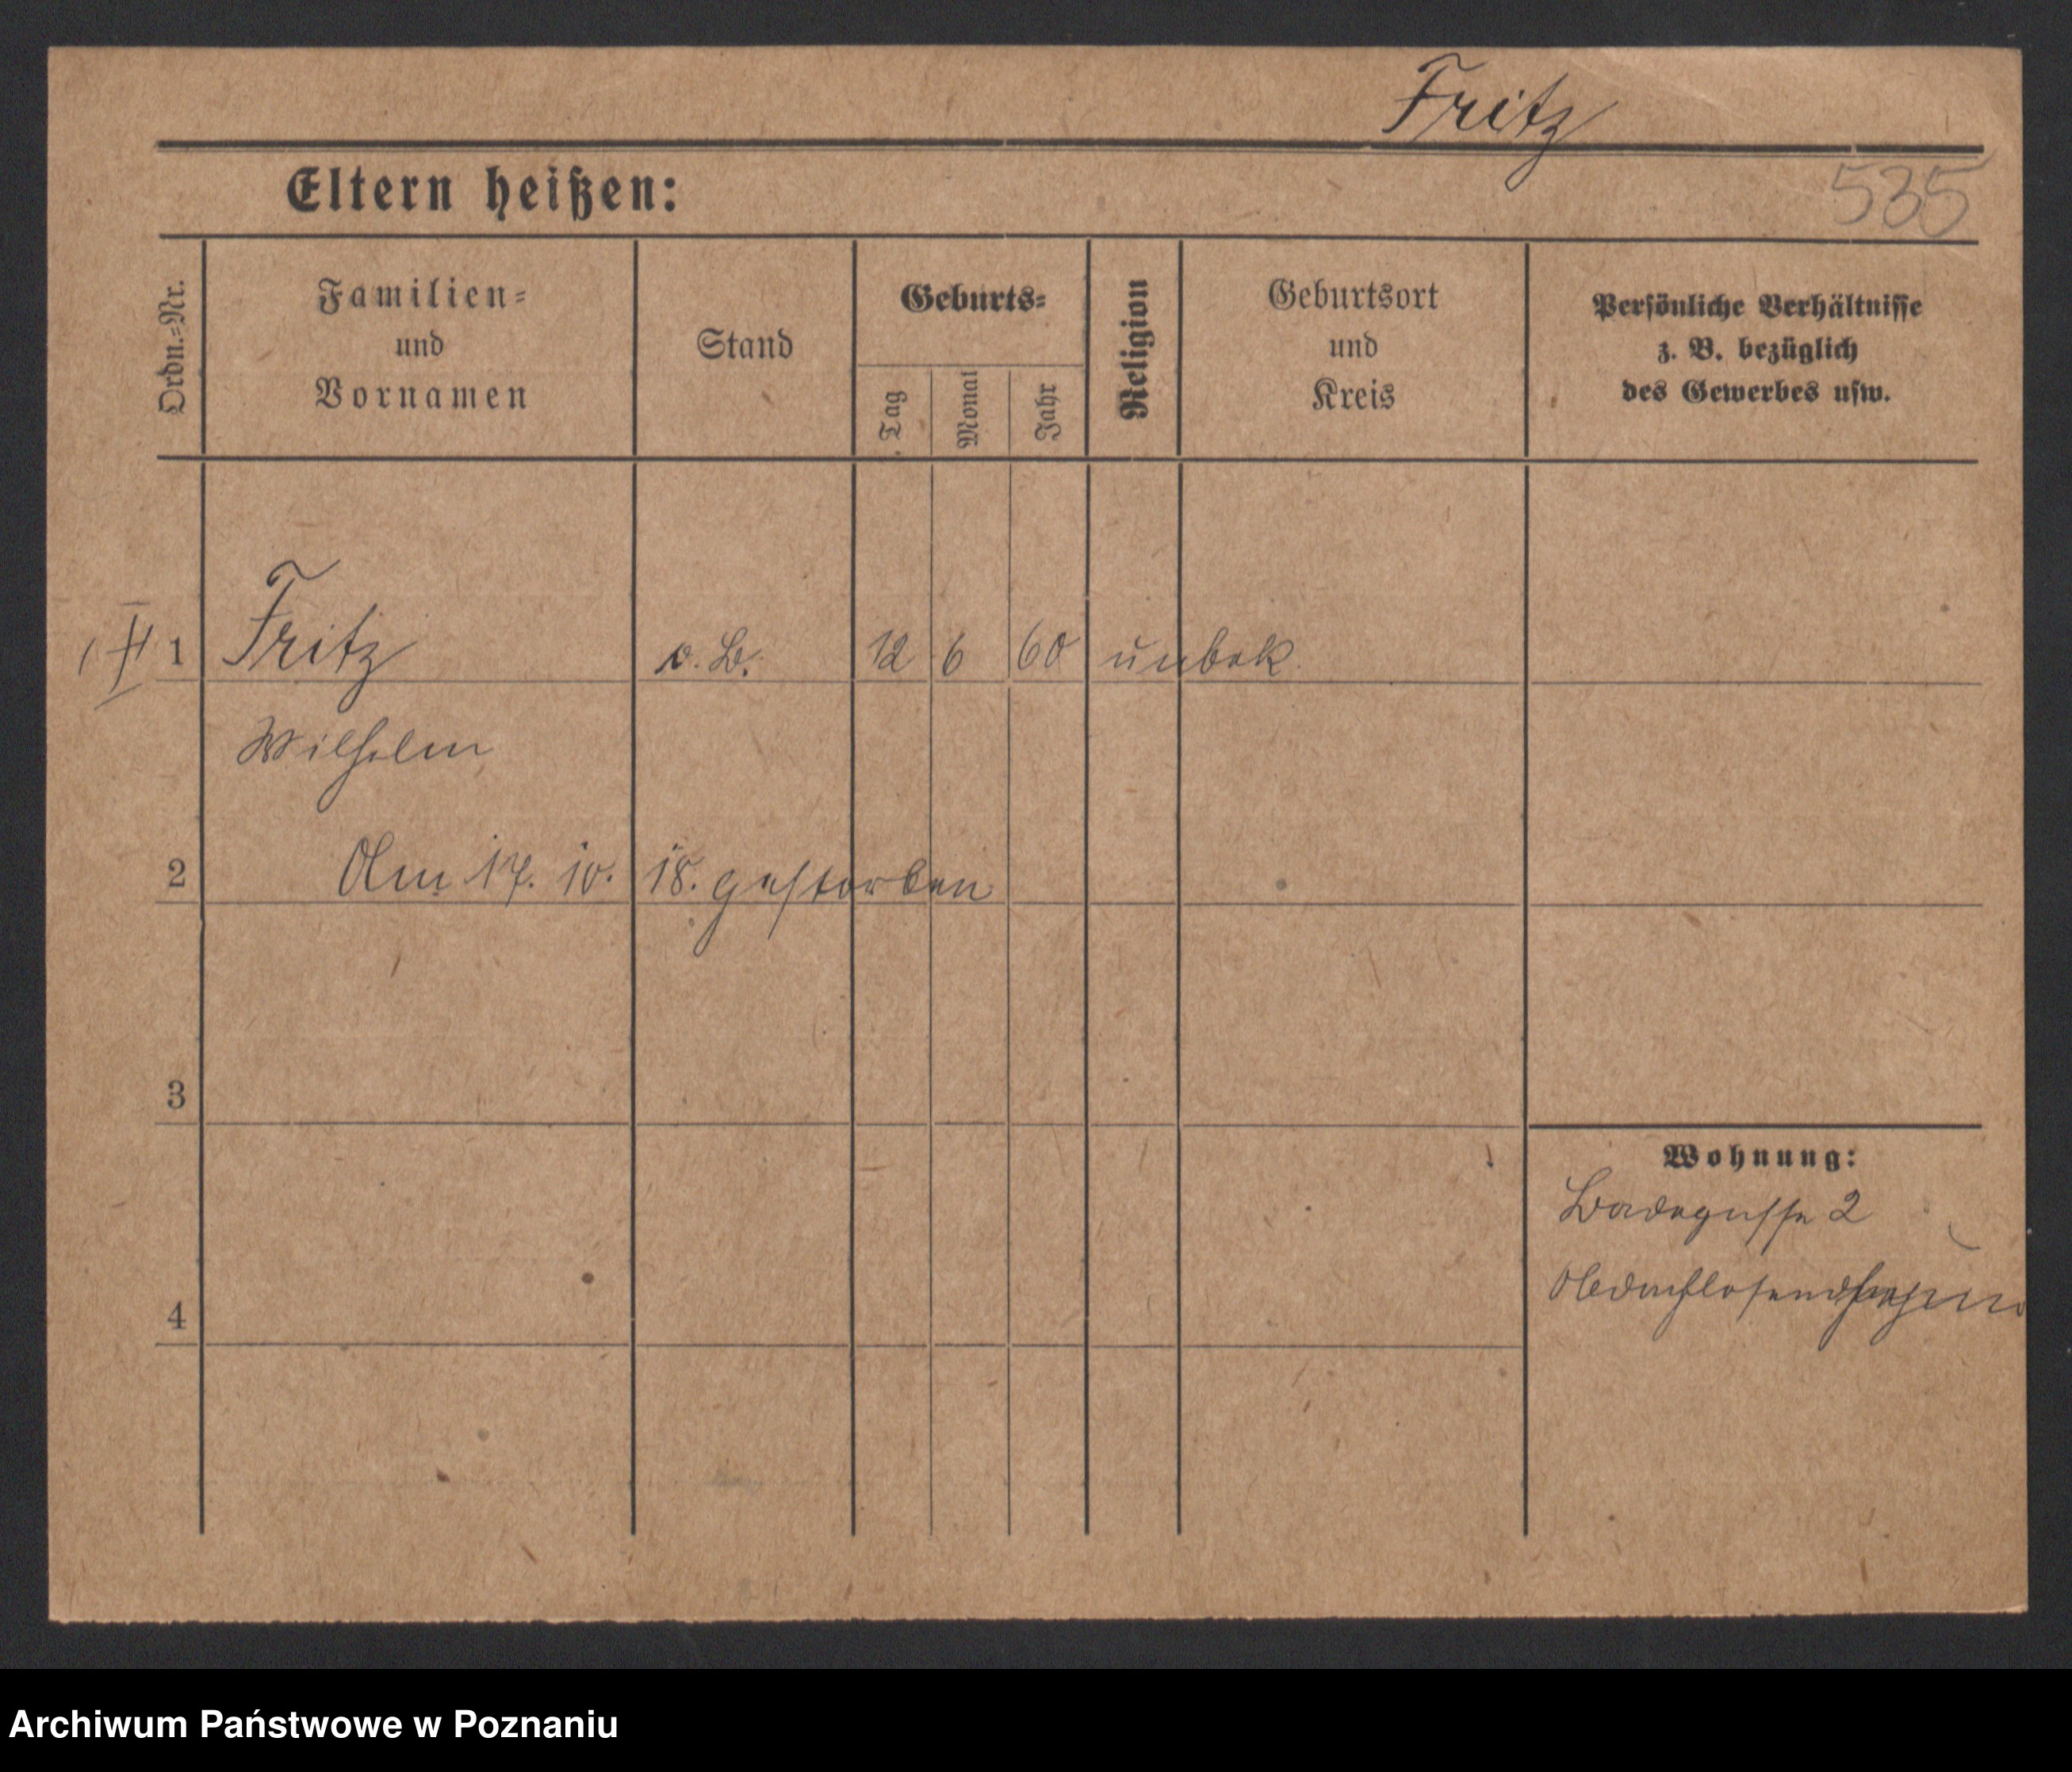 Fritz
Eltern heißen:
535
Ordn.-Nr.
Familien-
und
Vornamen
Stand
Geburts-
Tag
Monat
Jahr
Religion
Geburtsort
und
Kreis
Persönliche Verhältnisse
z. B. bezüglich
des Gewerbes usw.
1 Fritz o. B. 12 6 60 unbek.
Wilhelm
2 Am 17. 10. 18. gestorben
3
Wohnung:
Badegasse 2
4
Archiwum Państwowe w Poznaniu